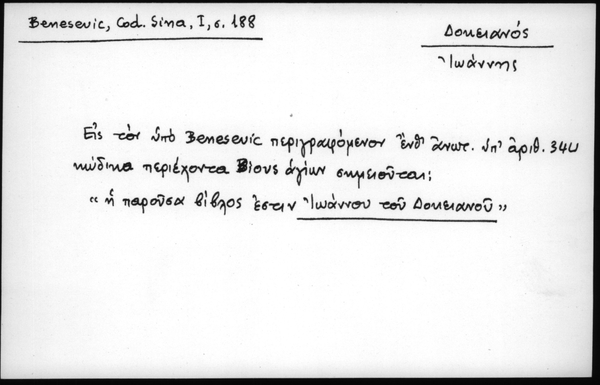 Benesevic, Cod. Sina, I, σ. 188
Δοκειανός
Ἰωάννης
Εἰς τὸν ὑπὸ Benesevic περιγραφόμενον ἔνθ' ἀνωτ. ὑπ' ἀριθ. 340
κώδικα περιέχοντα Βίους ἁγίων σημειοῦται:
"ἡ παροῦσα βίβλος ἐστιν Ἰωάννου τοῦ Δοκειανοῦ"